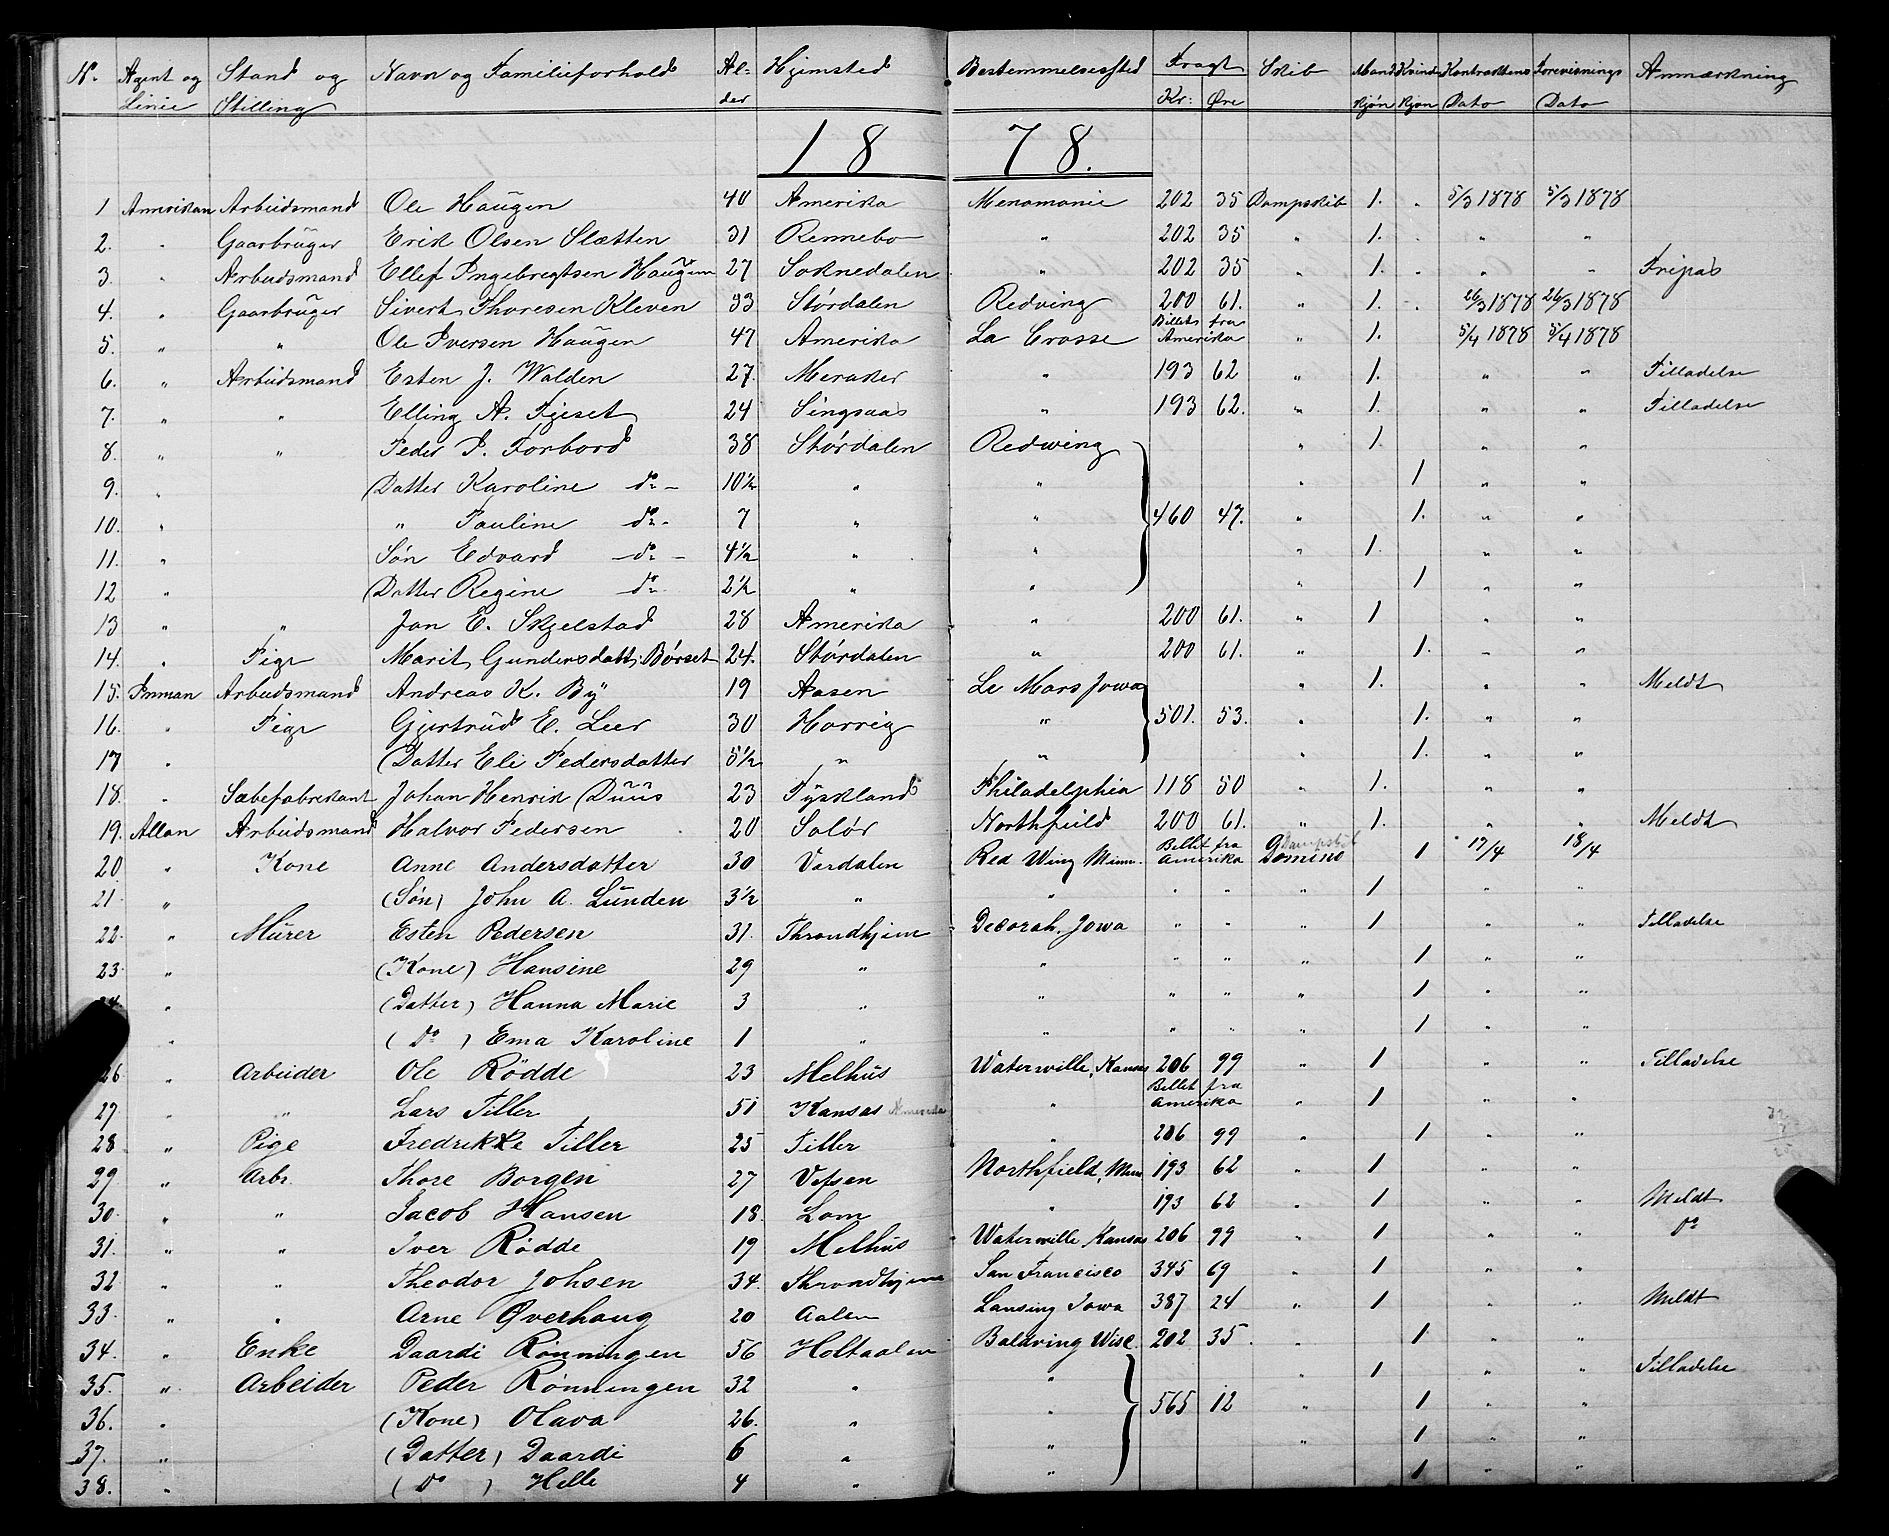 No. Agent og Linie Stand og Stilling Navn og Familieforhold Alder Hjemsted Bestemmelsessted Fragt Kr: Øre Skib Mandkjøn Kvindekjøn Kontraktens Dato Forevisnings Dato Anmærkning
1878.
1 Amerikan Arbeidsmand Ole Haugen 40 Amerika Menomonie 202 35 Dampskib 1. " 5/3 1878 5/3 1878
2. " Gaarbruger Erik Olsen Slætten 31 Rennebo " 202 35 " 1. " " "
3. " Arbeidsmand Ellef Ingebregtsen Haugen 27 Soknedalen " 202 35 " 1. " " " Fripas
4. " Gaarbruger Sivert Thoresen Kleven 33 Størdalen Redving 200 61. " 1. " 26/3 1878 26/3 1878
5. " " Ole Iversen Haugen 47 Amerika La Crosse Billet fra Amerika " 1. 5/4 1878 5/4 1878
6. " Arbeidsmand Esten J. Walden 27. Meraker " 193 62 " 1. " " Tilladelse
7. " " Elling A. Fjeset 24 Singsaas " 193 62. " 1. " " Tilladelse
8. " " Peder P. Forbord 38 Størdalen Redwing " 1. " "
9. " Datter Karoline do - 10½ " " " 1 " "
10. " " Pauline do - 7 " " 460 47. " 1. " "
11. " Søn Edvard do - 4½ " " " 1. " "
12 " Datter Regine do 2½ " " " 1 " "
13 " " Jon E. Skjelstad 28 Amerika " 200 61. " 1 " "
14. " Pige Marit Gundersdatt: Børset 24. Størdalen " 200 61. " 1. " "
15. Inman Arbeidsmand Andreas K. By 19 Aasen Le Mars Jowa " 1. " " Meldt
16. " Pige Gjertrud E. Leer 30 Horrig " 501. 53. " 1. " "
17 " Datter Eli Pedersdatter 5½ " " " 1. " "
18. " Sæbefabrikant Johan Henrik Duus 23 Tyskland Philadelphia 118 50 " 1. " "
19. Allan Arbeidsmand Halvor Pedersen 20 Solør Northfield 200 61. " 1. " " Meldt
20 " Kone Anne Andersdatter 30 Værdalen Red Wing Minn. Billet fra Amerika Dampskib Domino 1 17/4 18/4
21 " (Søn) John A. Lunden 3½ " " " " " 1 " "
22. " Murer Esten Pedersen 31. Throndhjem Decorah, Jowa " " " 1 " " Tilladelse
23 " (Kone) Hansine 29 " " " " " 1 " "
24 " (Datter) Hanna Marie 3 " " " " " 1 " "
" (do) Ema Karoline 1 " " " " " 1 " "
26 " Arbeider Ole Rödde 23 Melhus Waterwille, Kansas 206 99 " 1 " " Tilladelse
27 " " Lars Tiller 51 Kansas Amerika " Billet fra Amerika " 1 " "
28 " Pige Fredrikke Tiller 25 Tiller " 206 99 " 1 " "
29. " Arbr. Thore Borgen 27 Vefsen Northfield, Minn 193 62 " 1 " "
30. " " Jacob Hansen 18. Lom " 193 62 " 1 " " Meldt
31. " " Iver Rödde 19 Melhus Waterwille Kansas 206 99 " 1 " " do
32 " " Theodor Johsen 34. Throndhjem San Francisco 345 69 " 1 " "
33. " " Arne Øverhaug 20 Aalen Lansing Iowa 387 24 " 1 " " Meldt
34. " Enke Daardi Rønningen 56 Holtaalen Baldving Wisc. 202 35. " 1 " "
35. " Arbeider Peder Rønningen 32 " " " 1 " " Tilladelse
36. " (Kone) Olava 26. " " 565 12 " 1 " "
37. " (Datter) Daardi 6 " " " 1 " "
38. " (do) Helle 4 " " 1 " "